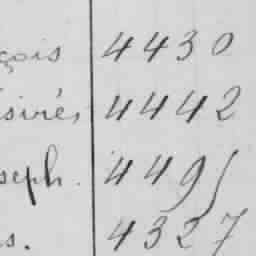 çois 4430
sirés 4442
seph. 449
s. 4327